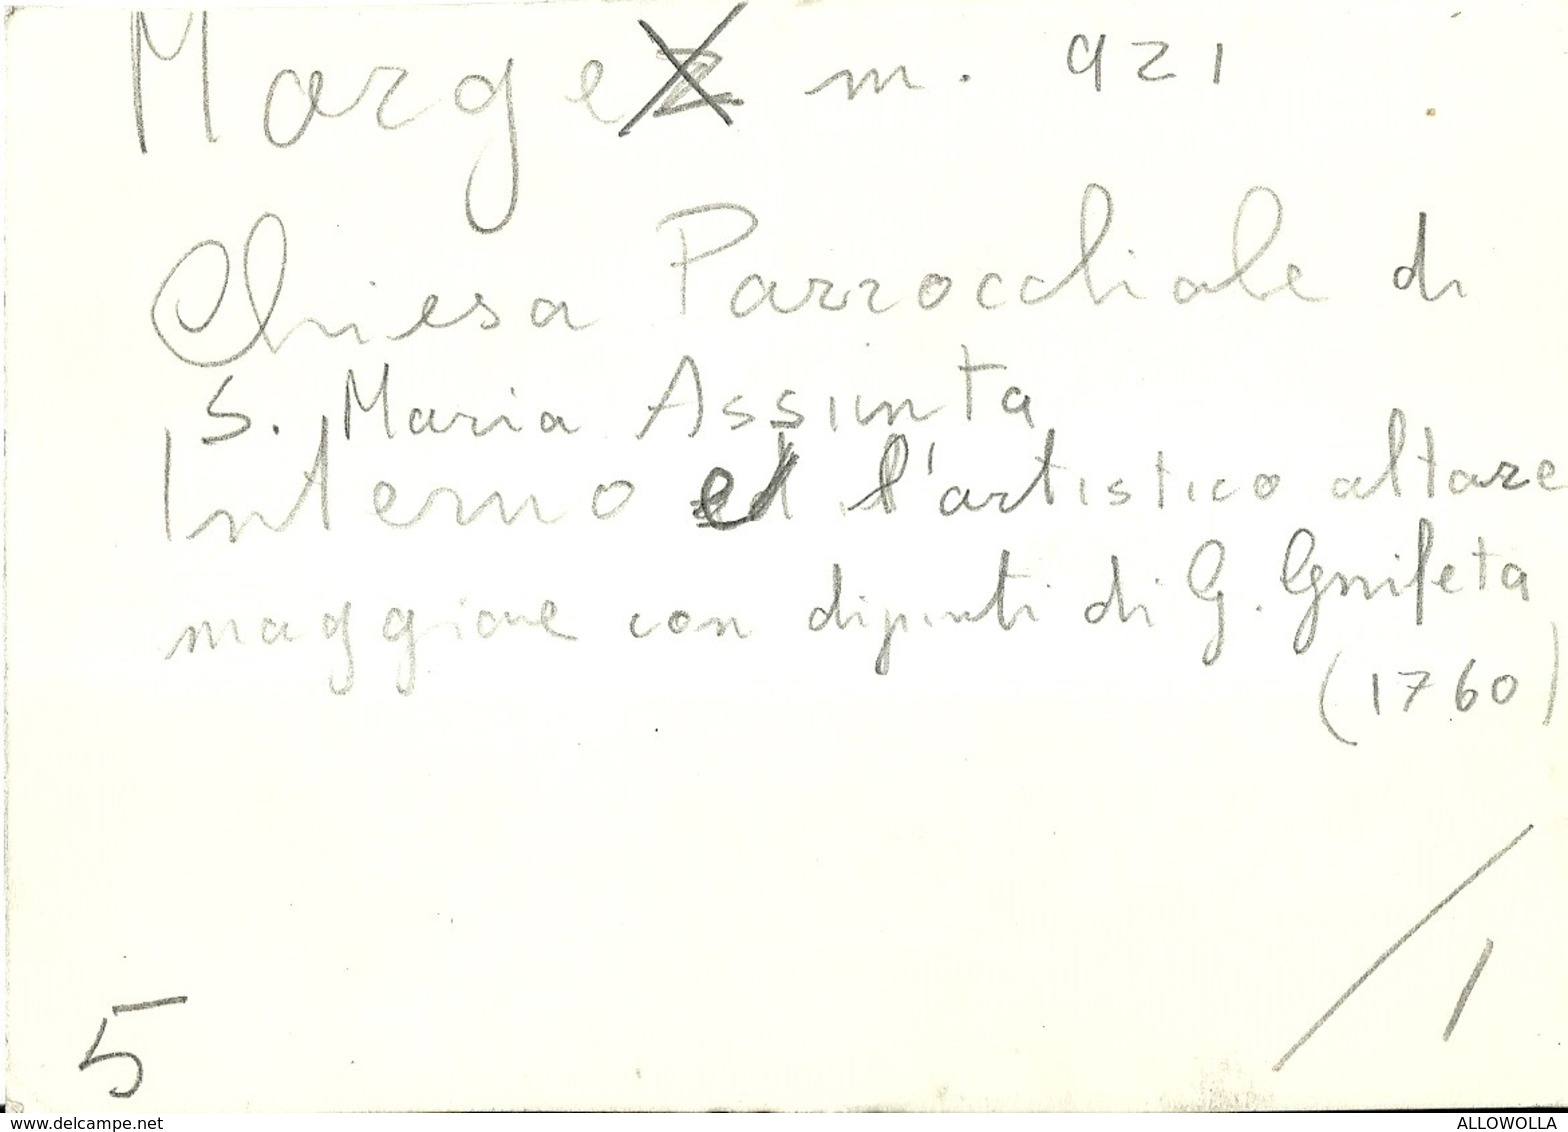 Marge m. 921
Chiesa Parrocchiale di
S. Maria Assunta
Interno ed l'artistico altare
maggiore con dipinti di G. Gnifeta
(1760)
/ 1
5
www.delcampe.net
ALLOWOLLA